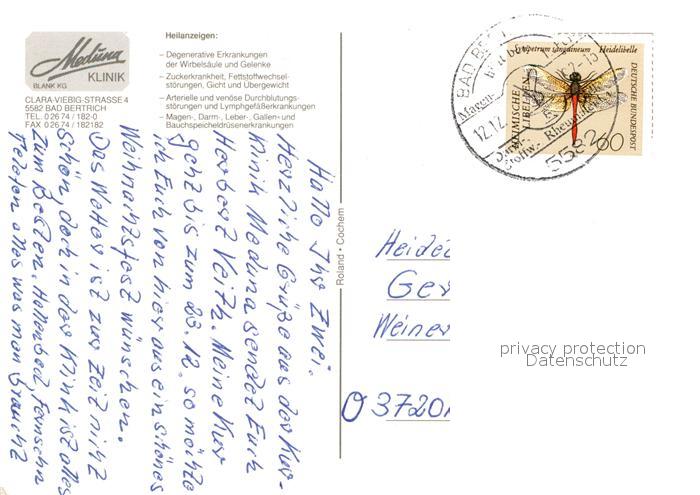 Meduna
KLINIK
BLANK KG
CLARA-VIEBIG-STRASSE 4
5582 BAD BERTRICH
TEL. 0 26 74 / 182-0
FAX 0 26 74 / 182182
Heilanzeigen:
– Degenerative Erkrankungen
der Wirbelsäule und Gelenke
– Zuckerkrankheit, Fettstoffwechsel-
störungen, Gicht und Übergewicht
– Arterielle und venöse Durchblutungs-
störungen und Lymphgefäßerkrankungen
– Magen-, Darm-, Leber-, Gallen- und
Bauchspeicheldrüsenerkrankungen
Hallo Ihr Zwei.
Herzliche Grüße aus der Kur-
klinik Meduna sendet Euch
Herbert Veith. Meine Kur
geht bis zum 23.12. so möchte
ich Euch von hier aus ein schönes
Weihnachtsfest wünschen.
Das Wetter ist zur Zeit nicht
schön, doch in der Klinik ist alles
zum Besten. Hallenbad, Fernsehn
Telefon alles was man braucht
Roland · Cochem
Sympetrum sanguineum Heidelibelle
HEIMISCHE
LIBELLEN
DEUTSCHE BUNDESPOST
60
BAD BERTRICH
Magen-
12.12.
Darm-
Stoffw.-
Rheuma
5582
Heidez
Ger
Weiner
O 3720
privacy protection
Datenschutz